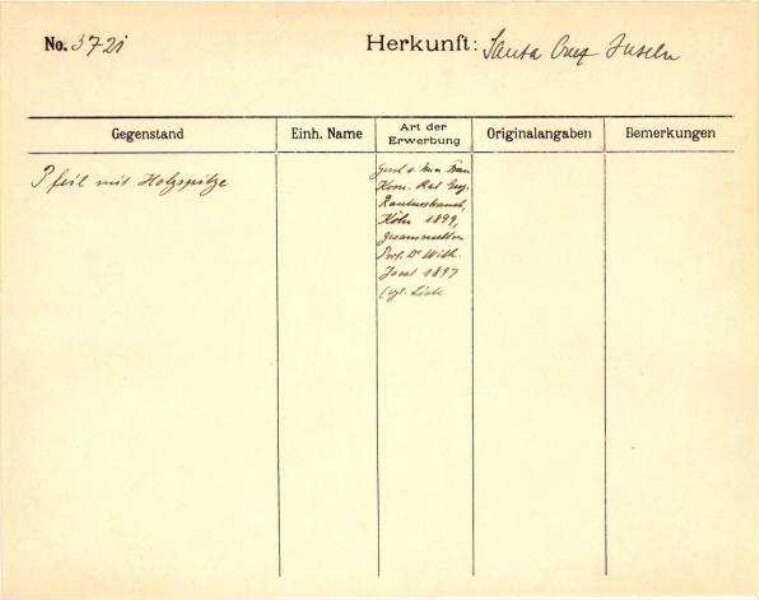 No. 3721
Herkunft: Santa Cruz Inseln
Gegenstand
Einh. Name
Art der Erwerbung
Originalangaben
Bemerkungen
Pfeil mit Holzspitze
Gesch. v. Frau
Kom. Rat Eug.
Rautenstrauch,
Köln 1899,
gesammelt von
Prof. Dr Wilh.
Joest 1897
(vgl. Liste